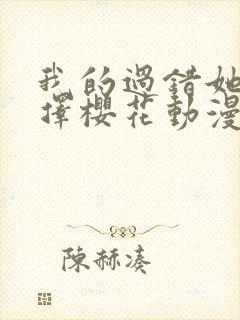 我的過錯她
擇櫻花動漫
陳赫湊